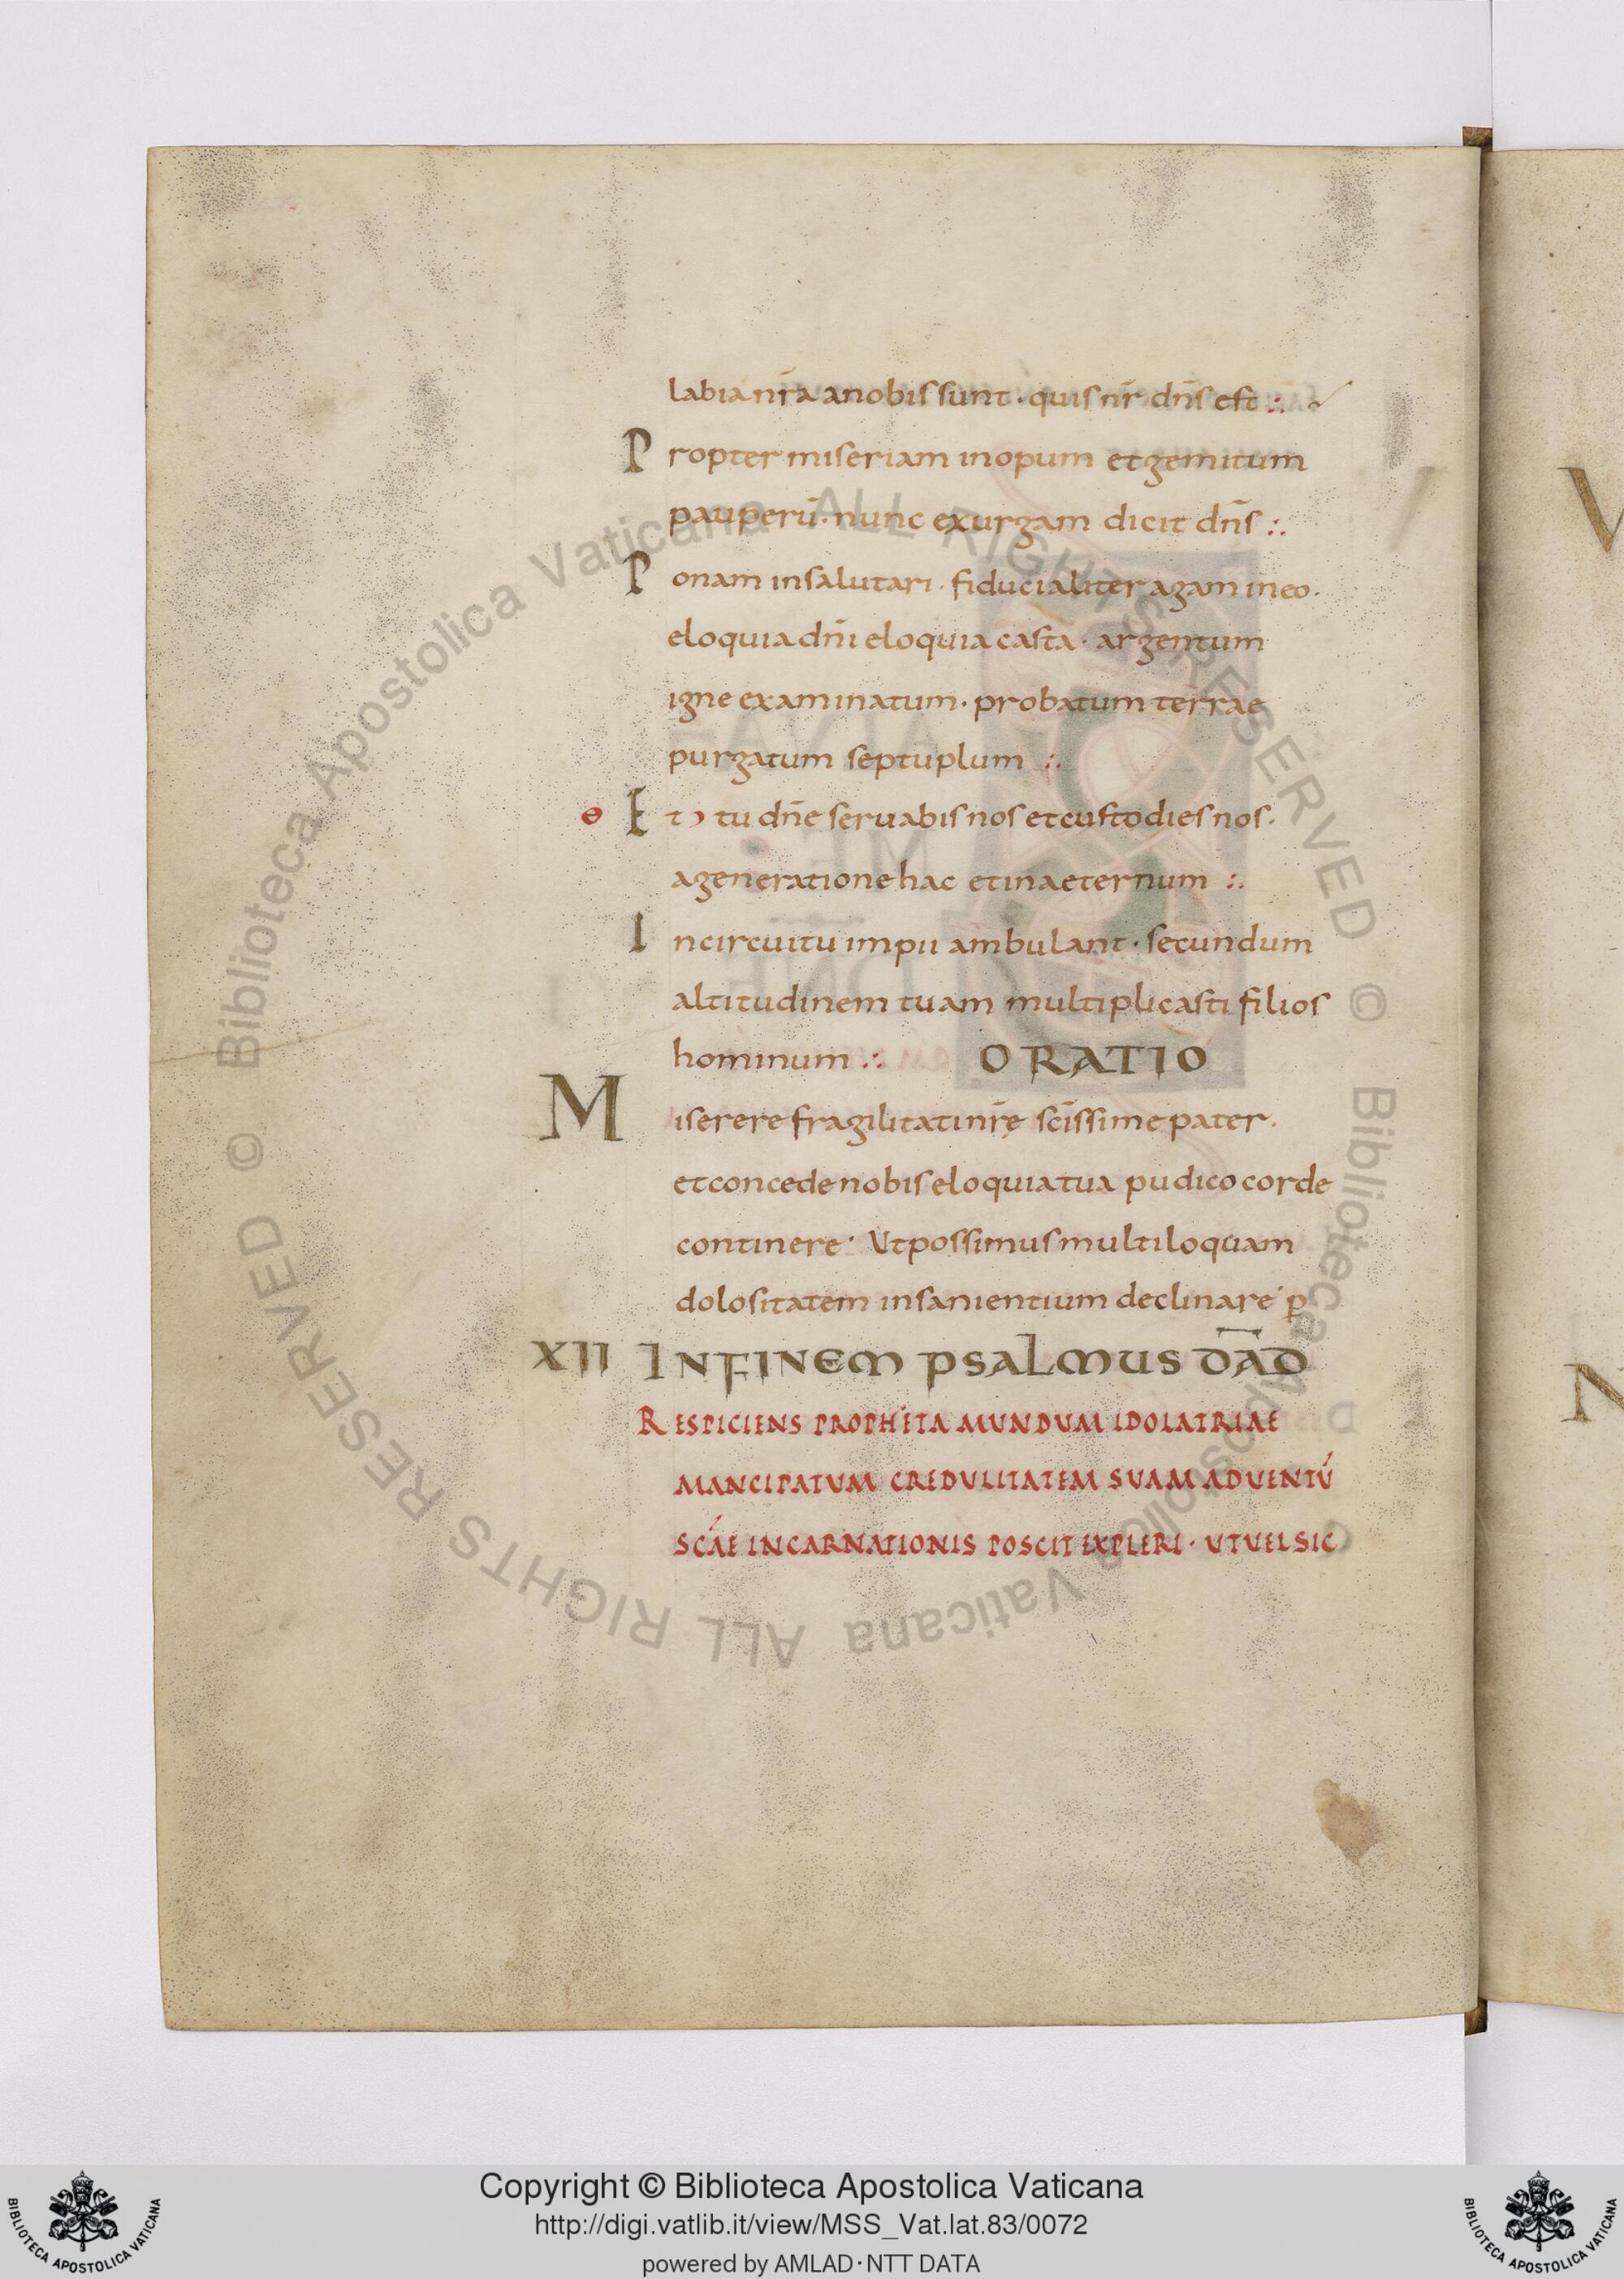 labia nr̄a a nobis sunt · quis nr̄ dn̄s est :·
Propter miseriam inopum et gemitum
pauperū · nunc exurgam dicit dn̄s :·
Ponam in salutari · fiducialiter agam in eo ·
eloquia dn̄i eloquia casta · argentum
igne examinatum · probatum terrae
purgatum septuplum :·
Et tu dn̄e seruabis nos et custodies nos ·
a generatione hac et in aeternum :·
In circuitu impii ambulant · secundum
altitudinem tuam multiplicasti filios
hominum :· ORATIO
Miserere fragilitati nr̄ę sc̄issime pater ·
et concede nobis eloquia tua pudico corde
continere · Ut possimus multiloquam
dolositatem insanientium declinare · p
XII IN FINEM PSALMUS DAD̄
RESPICIENS PROPHETA MUNDUM IDOLATRIAE
MANCIPATUM CREDULITATEM SUAM ADUENTŪ
SCÁE INCARNATIONIS POSCIT EXPLERI · UT UEL SIC
© Biblioteca Apostolica Vaticana ALL RIGHTS RESERVED © Biblioteca Apostolica Vaticana ALL RIGHTS RESERVED
Copyright © Biblioteca Apostolica Vaticana
http://digi.vatlib.it/view/MSS_Vat.lat.83/0072
powered by AMLAD·NTT DATA
BIBLIOTECA APOSTOLICA VATICANA
BIBLIOTECA APOSTOLICA VATICANA